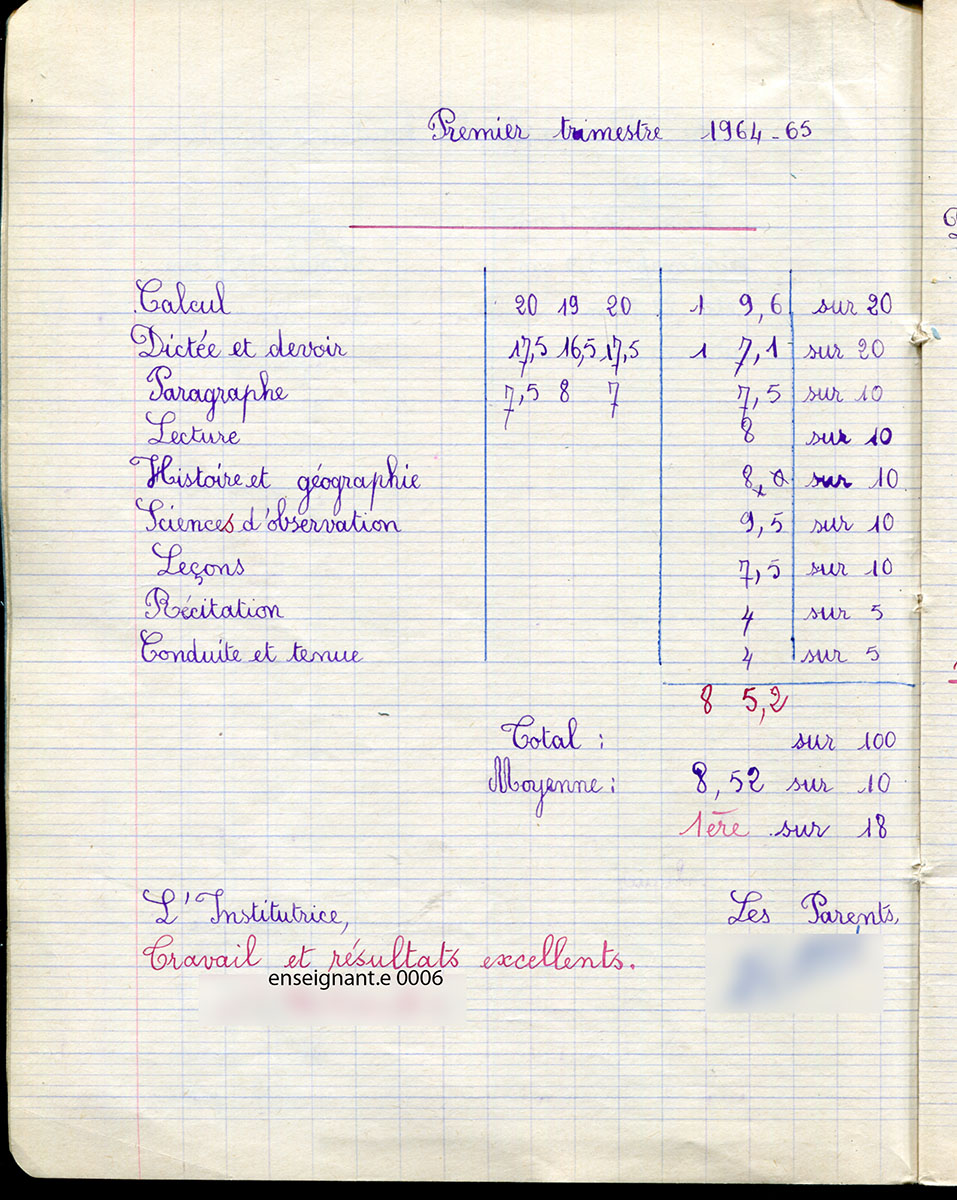 Premier trimestre 1964-65
Calcul 20 19 20 19,6 sur 20
Dictée et devoir 17,5 16,5 17,5 17,1 sur 20
Paragraphe 7,5 8 7 7,5 sur 10
Lecture 8 sur 10
Histoire et géographie 8 sur 10
Sciences d'observation 9,5 sur 10
Leçons 7,5 sur 10
Récitation 4 sur 5
Conduite et tenue 4 sur 5
85,2
Total : sur 100
Moyenne : 8,52 sur 10
1ère sur 18
L'Institutrice, Les Parents,
Travail et résultats excellents.
enseignant.e 0006